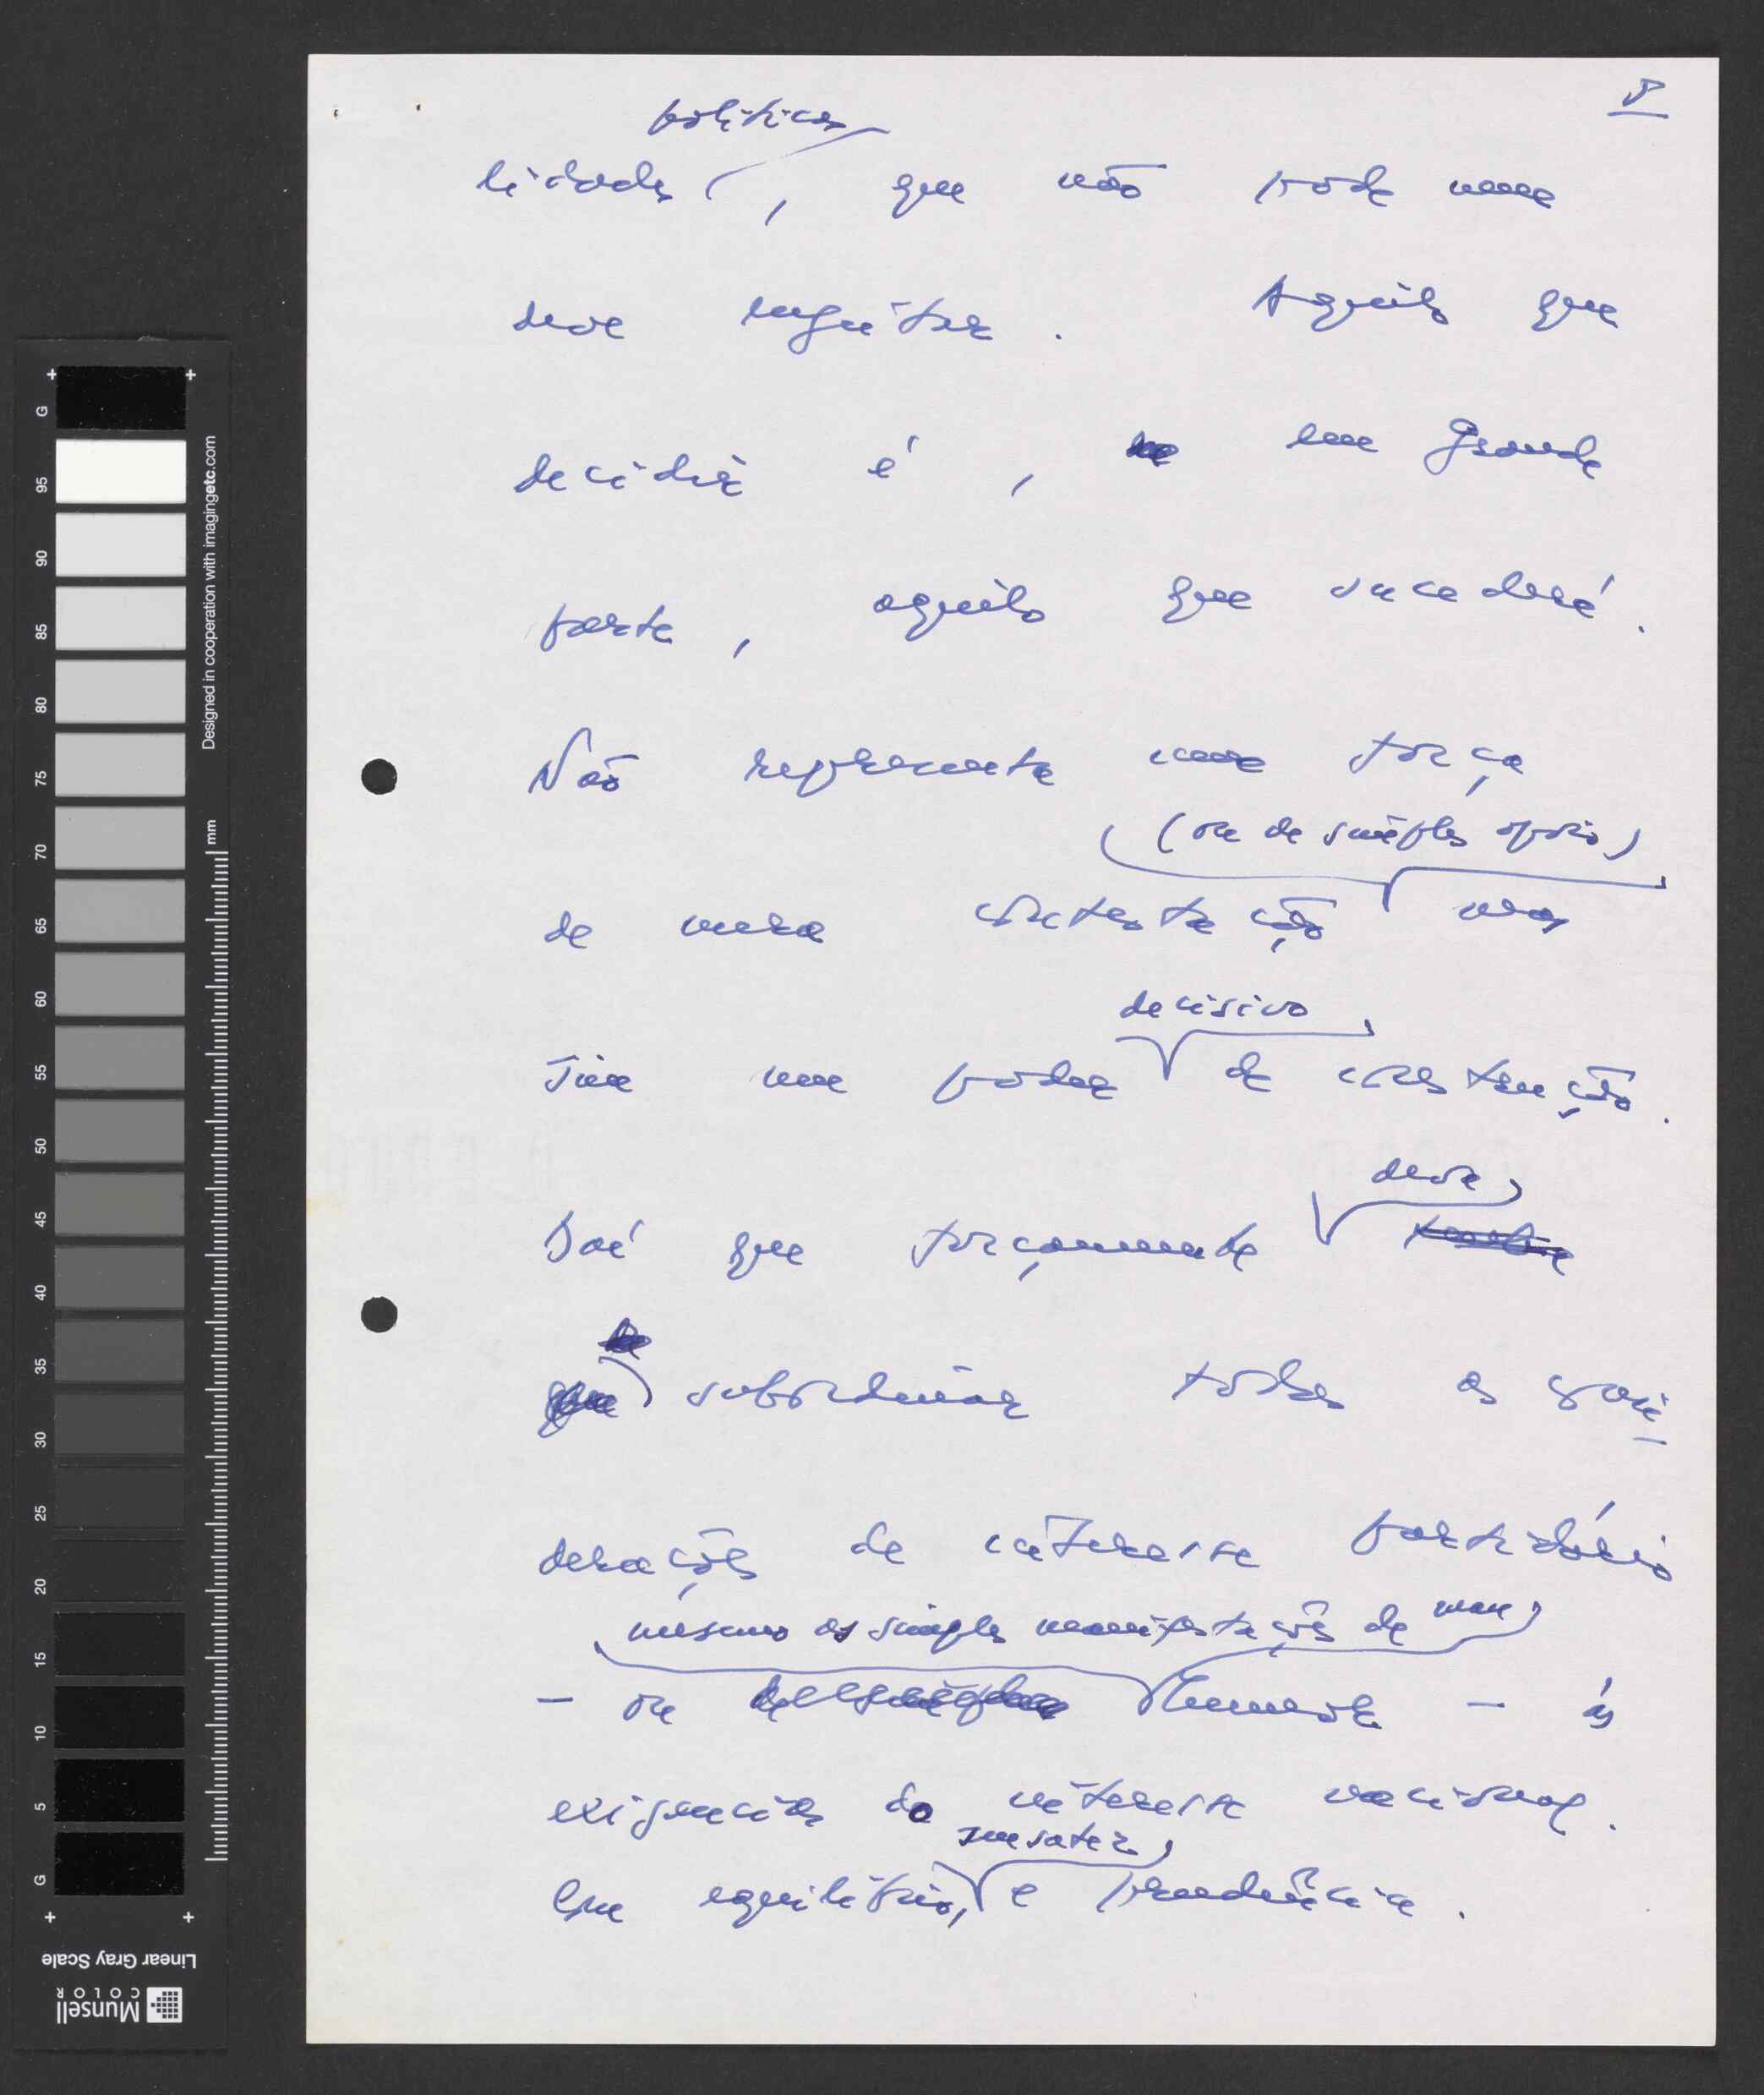 8
políticas
lidades, que não pode nem
deve enjeitar. Aquilo que
decidir é, em grande
parte, aquilo que sucederá.
Não representa uma força
(ou de simples apoio)
de mera contestação mas
decisivo
sim um poder de construção.
deve
Daí que forçosamente
que subordinar todas as
derações de interesse partidário
mesmo as simples manifestações de mau
– ou humor – às
exigências do interesse nacional.
sensatez
Com equilíbrio, e prudência.
G
95
90
85
80
75
70
65
60
55
50
45
40
35
30
25
20
15
10
5
G
mm
Designed in cooperation with imagingetc.com
Linear Gray Scale
Munsell
COLOR